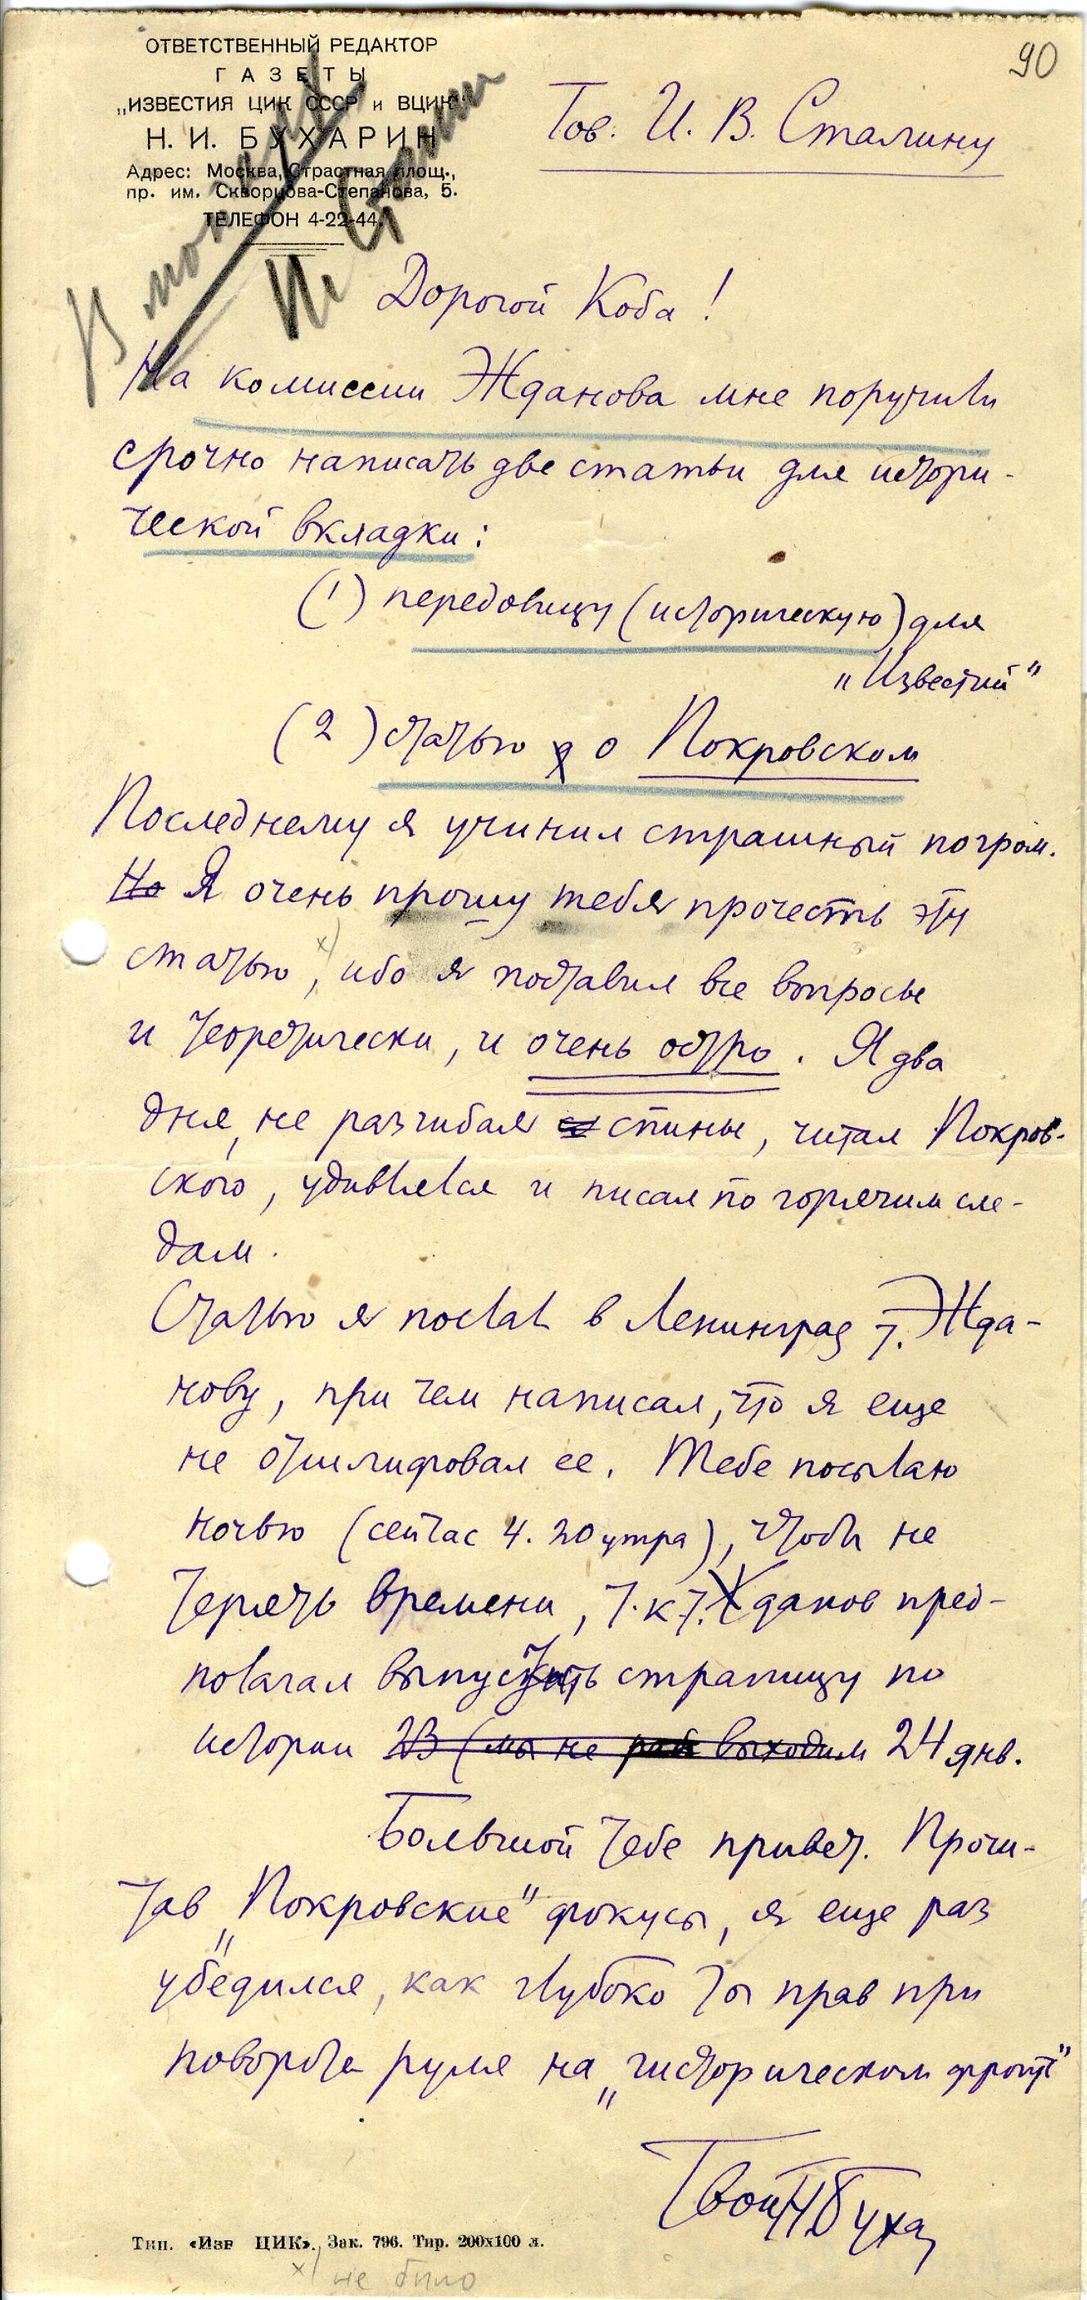 90
ОТВЕТСТВЕННЫЙ РЕДАКТОР
ГАЗЕТЫ
„ИЗВЕСТИЯ ЦИК СССР и ВЦИК"
Н. И. БУХАРИН
Адрес: Москва, Страстная площ.,
пр. им. Скворцова-Степанова, 5.
ТЕЛЕФОН 4-22-44.
В мой
И Сталин
Тов. И. В. Сталину
Дорогой Коба!
На комиссии Жданова мне поручили
срочно написать две статьи для истори-
ческой вкладки:
(1) передовицу (историческую) для
„Известий"
(2) статью о Покровском
Последнему я учинил страшный погром.
Но Я очень прошу тебя прочесть эту
статью х), ибо я поставил все вопросы
и теоретически, и очень остро. Я два
дня, не разгибая спины, читал Покров-
ского, удивлялся и писал по горячим сле-
дам.
Статью я послал в Ленинград т. Жда-
нову, при чем написал, что я еще
не отшлифовал ее. Тебе посылаю
ночью (сейчас 4.20 утра), чтобы не
терять времени, т.к. т. Жданов пред-
полагал выпустить страницу по
истории 23 (мы не выходим 24 янв.
Большой тебе привет. Прочи-
тав „Покровские" фокусы, я еще раз
убедился, как глубоко ты прав при
повороте руля на „историческом фронте"
Твой Н Буха
Тип. «Изв ЦИК». Зак. 796. Тир. 200х100 л.
х) не было